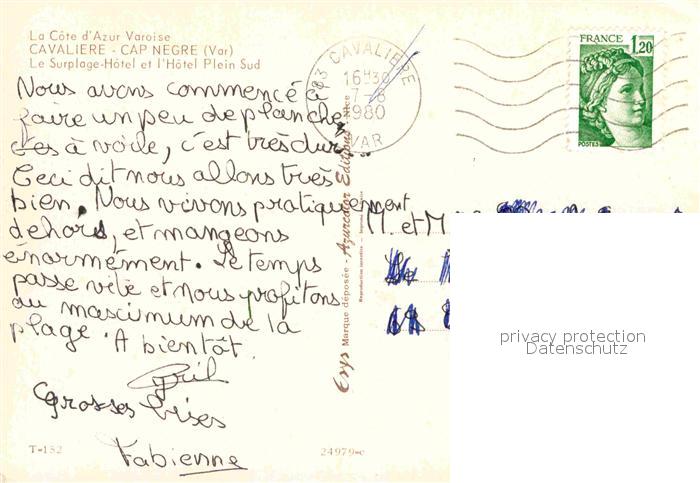 La Côte d'Azur Varoise
CAVALIERE - CAP NEGRE (Var)
Le Surplage-Hôtel et l'Hôtel Plein Sud
Nous avons commencé à
faire un peu de planche
à voile, c'est très dur.
Ceci dit nous allons très
bien. Nous vivons pratiquement
dehors, et mangeons
énormément. Le temps
passe vite et nous profitons
au mascimum de la
plage. A bientôt.
Cyril
Grosses bises
Fabienne
T-152
24979-c
83 CAVALIERE
16H30
7-8
1980
VAR
FRANCE
1,20
POSTES
Erys Marque déposée - Azurcolor Editions Nice
Reproduction interdite
M. et M
privacy protection
Datenschutz